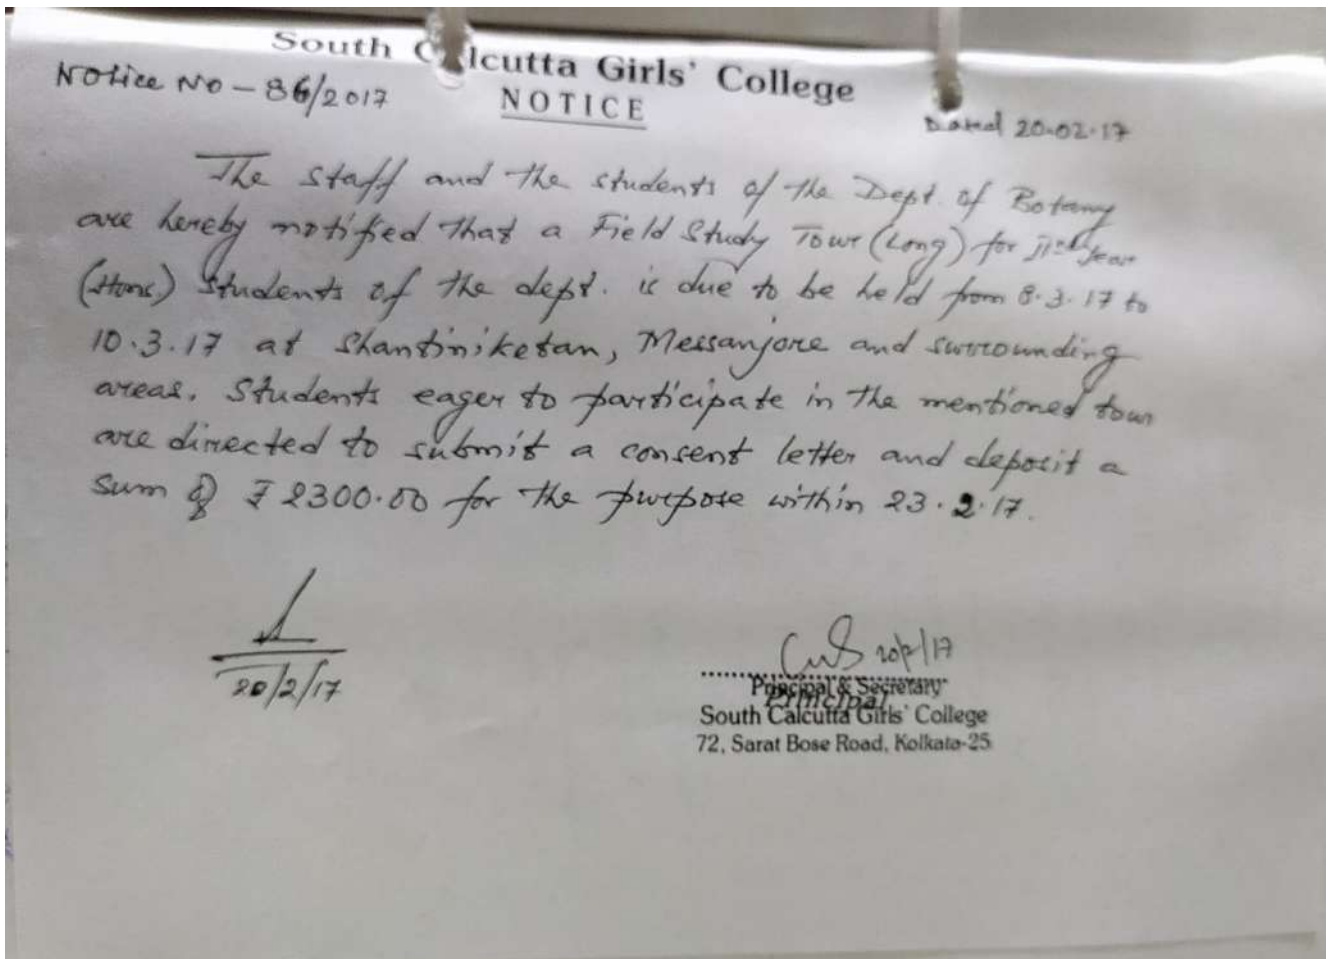 South Calcutta Girls' College
Notice No - 86/2017
NOTICE
Dated 20.02.17
The staff and the students of the Dept. of Botany
are hereby notified that a Field Study Tour (Long) for IInd year
(Hons) Students of the dept. is due to be held from 8.3.17 to
10.3.17 at Shantiniketan, Messanjore and surrounding
areas. Students eager to participate in the mentioned tour
are directed to submit a consent letter and deposit a
sum of ₹ 2300.00 for the purpose within 23.2.17.
20/2/17
20/2/17
Principal & Secretary
Principal
South Calcutta Girls' College
72, Sarat Bose Road, Kolkata-25